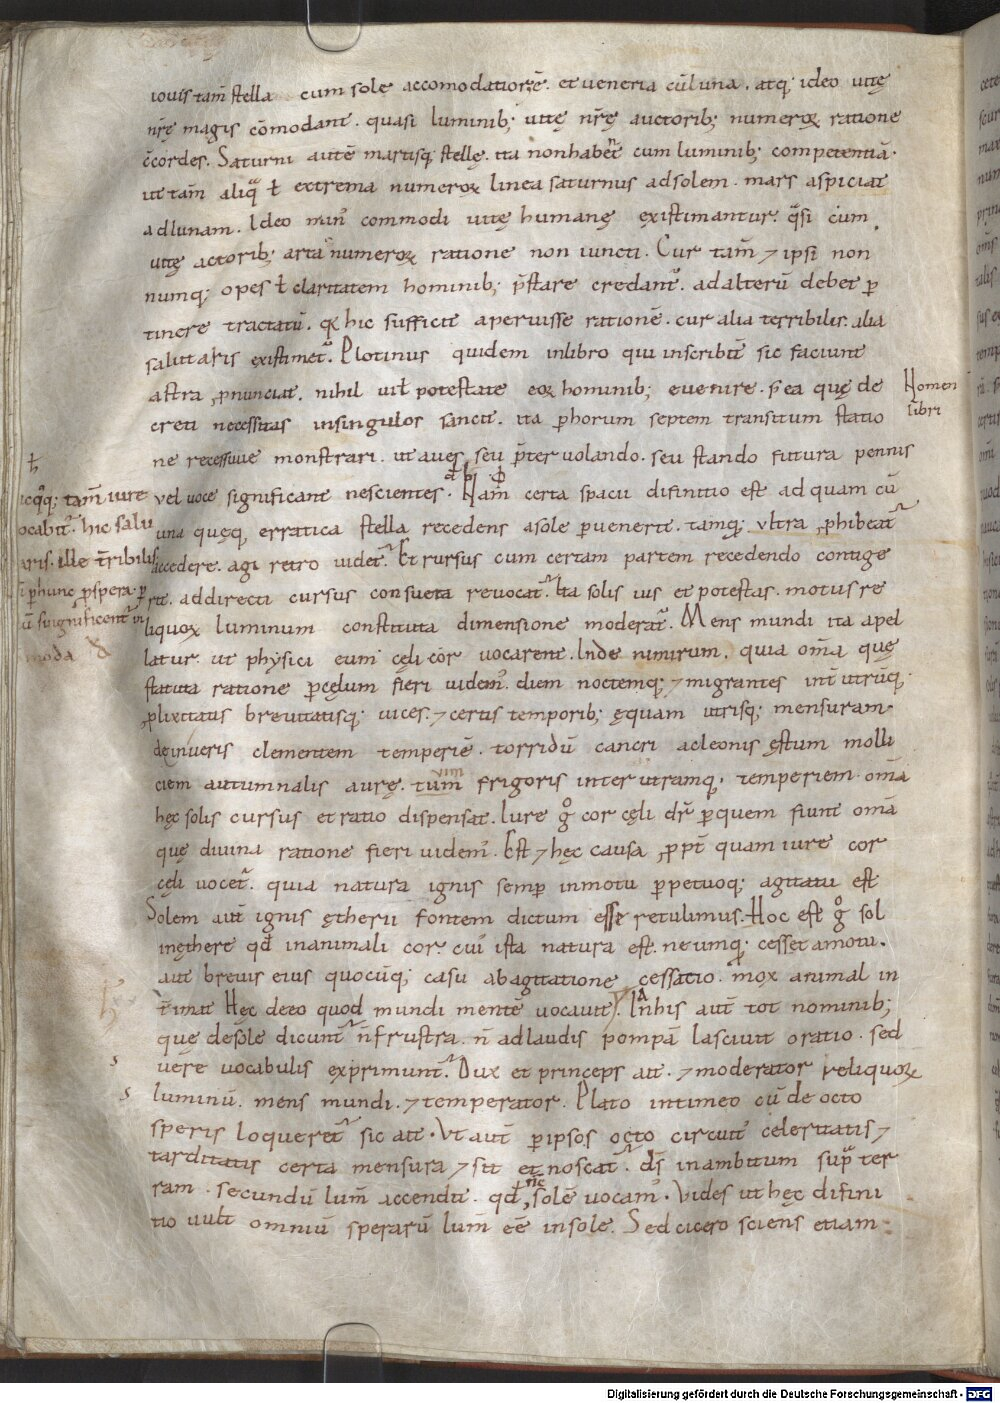 iouis tam̄ stella cum sole accomodatiorē. et ueneria cū luna. atq; ideo uitę
nr̄ę magis cōmodant. quasi luminib; uitę nr̄ę auctorib; numeroꝝ ratione
c̄cordes. Saturni autē martisq; stellę. ita non habet cum luminib; competentiā.
ut tam̄ aliq̄ ł extrema numeroꝝ linea saturnus ad solem. mars aspiciat
ad lunam. Ideo min᾽ commodi uitę humanę existimantur. q̄si cum
uitę actorib; arta numeroꝝ ratione non iuncti. Cur tam̄ ⁊ ipsi non
numq; opes ł claritatem hominib; p̄stare credant᾽. ad alterū debet ꝑ
tinere tractatū. qꝫ hic sufficit aperuisse rationē. cur alia terribilis. alia
salutaris existimet᾽. Plotinus quidem in libro qui inscribit᾽ sic faciunt
astra ꝓnunciat. nihil ui ł potestate eoꝝ hominib; euenire. s; ea quę de
creti necessitas in singulos sancit. ita ꝑ horum septem transitum statio
ne recessuue monstrari. ut aues seu p̄ter uolando. seu stando futura pennis
Homeri
libri
vel uoce significant nescientes. Nam certa spacii difinitio est ad quam cū
una quęq; erratica stella recedens a sole ꝑuenerit. tamq; vltra ꝓhibeat᾽
accedere. agi retro uidet᾽. Et rursus cum certam partem recedendo contige
rit. ad directi cursus consueta reuocat᾽. Ita solis uis et potestas. motus re
liquoꝝ luminum constituta dimensione moderat᾽. Mens mundi ita apel
latur. ut physici eum cęli cor uocarent. Inde nimirum. quia om̄a quę
statuta ratione ꝑ cęlum fieri uidem᾽. diem noctemq; ⁊ migrantes int̄ utrūq;
ꝓlixitatis breuitatisq; uices. ⁊ certis temporib; ęquam utrisq; mensuram.
dein ueris clementem temperiē. torridū cancri ac leonis ęstum molli
ciem autumnalis aurę. tum uim frigoris inter utramq; temperiem. om̄a
hęc solis cursus et ratio dispensat. Iure gͦ cor cęli dr̄ ꝑ quem fiunt om̄a
quę diuina ratione fieri uidem᾽. Est ⁊ hęc causa ꝓpt̄ quam iure cor
cęli uocet᾽. quia natura ignis semꝑ in motu ꝑpetuoq; agitatu est
Solem aut̄ ignis ętherii fontem dictum esse retulimus. Hoc est gͦ sol
in ęthere qd̄ in animali cor. cui᾽ ista natura est. ne umq; cesset a motu.
aut breuis eius quocūq; casu ab agitatione cessatio. mox animal in
t̄imat. Hęc de eo quod mundi mentē uocauit. In his aut̄ tot nominib;
quę de sole dicunt᾽ n̄ frustra. n̄ ad laudis pompā lasciuit oratio. sed
uere uocabulis exprimunt᾽. Dux et princeps ait. ⁊ moderator reliquoꝝ
luminū. mens mundi. ⁊ temperator. Plato in timeo cū de octo
speris loqueret᾽ sic ait. Vt aut̄ ꝑ ipsos octo circuit᾽ celeritatis ⁊
tarditatis certa mensura ⁊ sit et noscat᾽. d̄s in ambitum supra ter
ram. secundū lum̄ accendit. qd̄ nc̄ solē uocam᾽. Vides ut hęc difini
tio uult omniū sperarū lum̄ eē in sole. Sed cicero sciens etiam